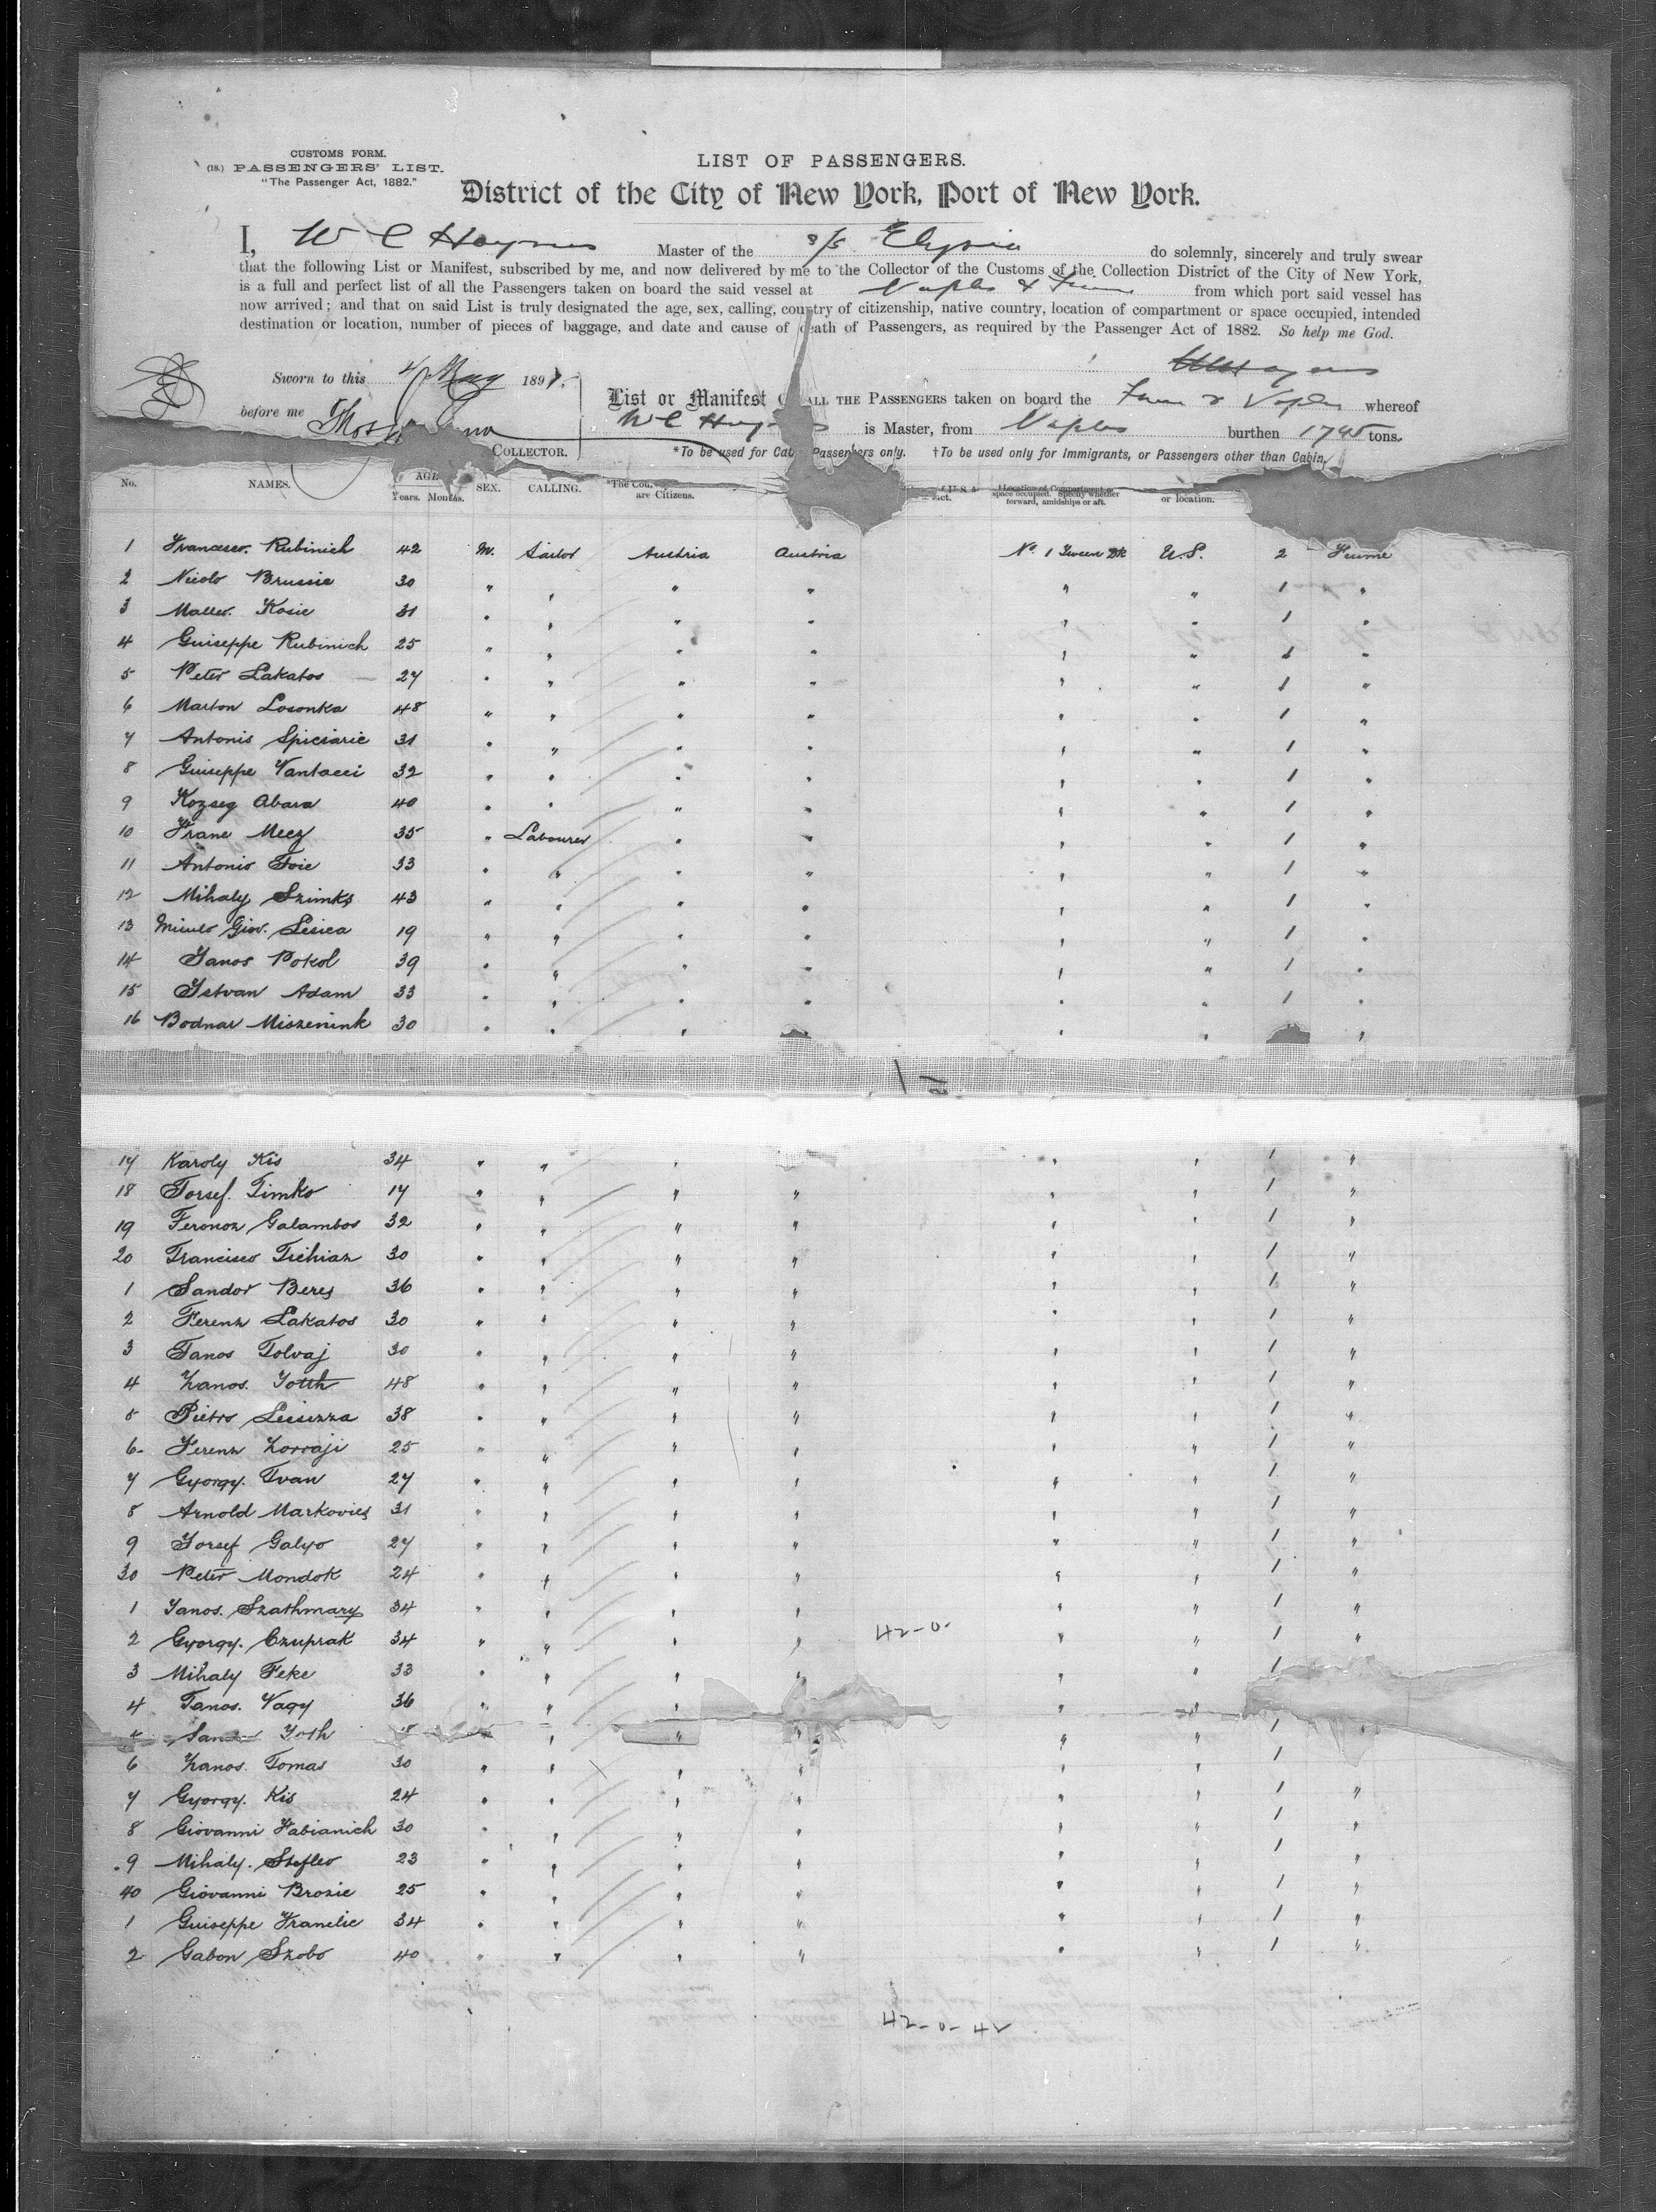 CUSTOMS FORM.
(18.) PASSENGERS' LIST.
"The Passenger Act, 1882."
LIST OF PASSENGERS.
District of the City of New York, Port of New York.
I, W C Haynes Master of the s/s Elysia do solemnly, sincerely and truly swear
that the following List or Manifest, subscribed by me, and now delivered by me to the Collector of the Customs of the Collection District of the City of New York,
is a full and perfect list of all the Passengers taken on board the said vessel at Naples & Fiume from which port said vessel has
now arrived; and that on said List is truly designated the age, sex, calling, country of citizenship, native country, location of compartment or space occupied, intended
destination or location, number of pieces of baggage, and date and cause of death of Passengers, as required by the Passenger Act of 1882. So help me God.
Sworn to this 4 May 189
before me Thos
COLLECTOR.
List or Manifest ALL THE PASSENGERS taken on board the Fiume & Naples whereof
W C Haynes is Master, from Naples burthen 1745 tons.
*To be used for Passengers only. †To be used only for Immigrants, or Passengers other than Cabin.
No. NAMES. AGE Years. Months. SEX. CALLING. *The Cou are Citizens. of U.S.A. †Location of Compartment or space occupied. Specify whether forward, amidships or aft. or location.
1 Francesco. Rubinich 42 M. Sailor Austria Austria No. 1 Tween Dk U.S. 2 Fiume
2 Nicolo Brussic 30 " " " " " " 1 "
3 Matteo. Kosic 31 " " " " " " 1 "
4 Guiseppe Rubinich 25 " " " " " " 1 "
5 Peter Lakatos 27 " " " " " " 1 "
6 Marton Losonka 48 " " " " " " 1 "
7 Antonis Spiciaric 31 " " " " " " 1 "
8 Guiseppe Vantacci 32 " " " " " " 1 "
9 Kozseg Abara 40 " " " " " " 1 "
10 Frane Mecz 35 " Labourer " " " " 1 "
11 Antonio Toic 33 " " " " " " 1 "
12 Mihaly Szimks 43 " " " " " " 1 "
13 Giov. Lesica 19 " " " " " " 1 "
14 Janos Pokol 39 " " " " " " 1 "
15 Istvan Adam 33 " " " " " " 1 "
16 Bodnar Miszenink 30 " " " " " "
17 Karoly Kis 34 " " " " " 1 "
18 Torsef. Timko 17 " " " " " " 1 "
19 Feronoz Galambos 32 " " " " " " 1 "
20 Francisco Tichiaz 30 " " " " " " 1 "
1 Sandor Beres 36 " " " " " " 1 "
2 Ferenz Lakatos 30 " " " " " " 1 "
3 Tanos Tolvaj 30 " " " " " " 1 "
4 Zanos. Totth 48 " " " " " " 1 "
5 Pietro Lesizza 38 " " " " " " 1 "
6 Ferenz Zorraji 25 " " " " " " 1 "
7 Gyorgy. Ivan 27 " " " " " " 1 "
8 Arnold Markovics 31 " " " " " " 1 "
9 Jorsef Galyo 27 " " " " " " 1 "
30 Peter Mondok 24 " " " " " " 1 "
1 Janos. Szathmary 34 " " " " " " 1 "
2 Gyorgy. Czuprak 34 " " " " 42-0- " " 1 "
3 Mihaly Feke 33 " " " " " " 1
4 Tanos. Nagy 36 " " " " "
Toth " " " " " 1 "
6 Zanos. Tomas 30 " " " " " " 1
7 Gyorgy. Kis 24 " " " " " " 1 "
8 Giovanni Fabianich 30 " " " " " " 1 "
9 Mihaly. Stefleo 23 " " " " " " 1 "
40 Giovanni Brozic 25 " " " " " " 1 "
1 Guiseppe Franelic 34 " " " " " " 1 "
2 Gabon Szobo 40 " " " " " " 1 "
42-0-42